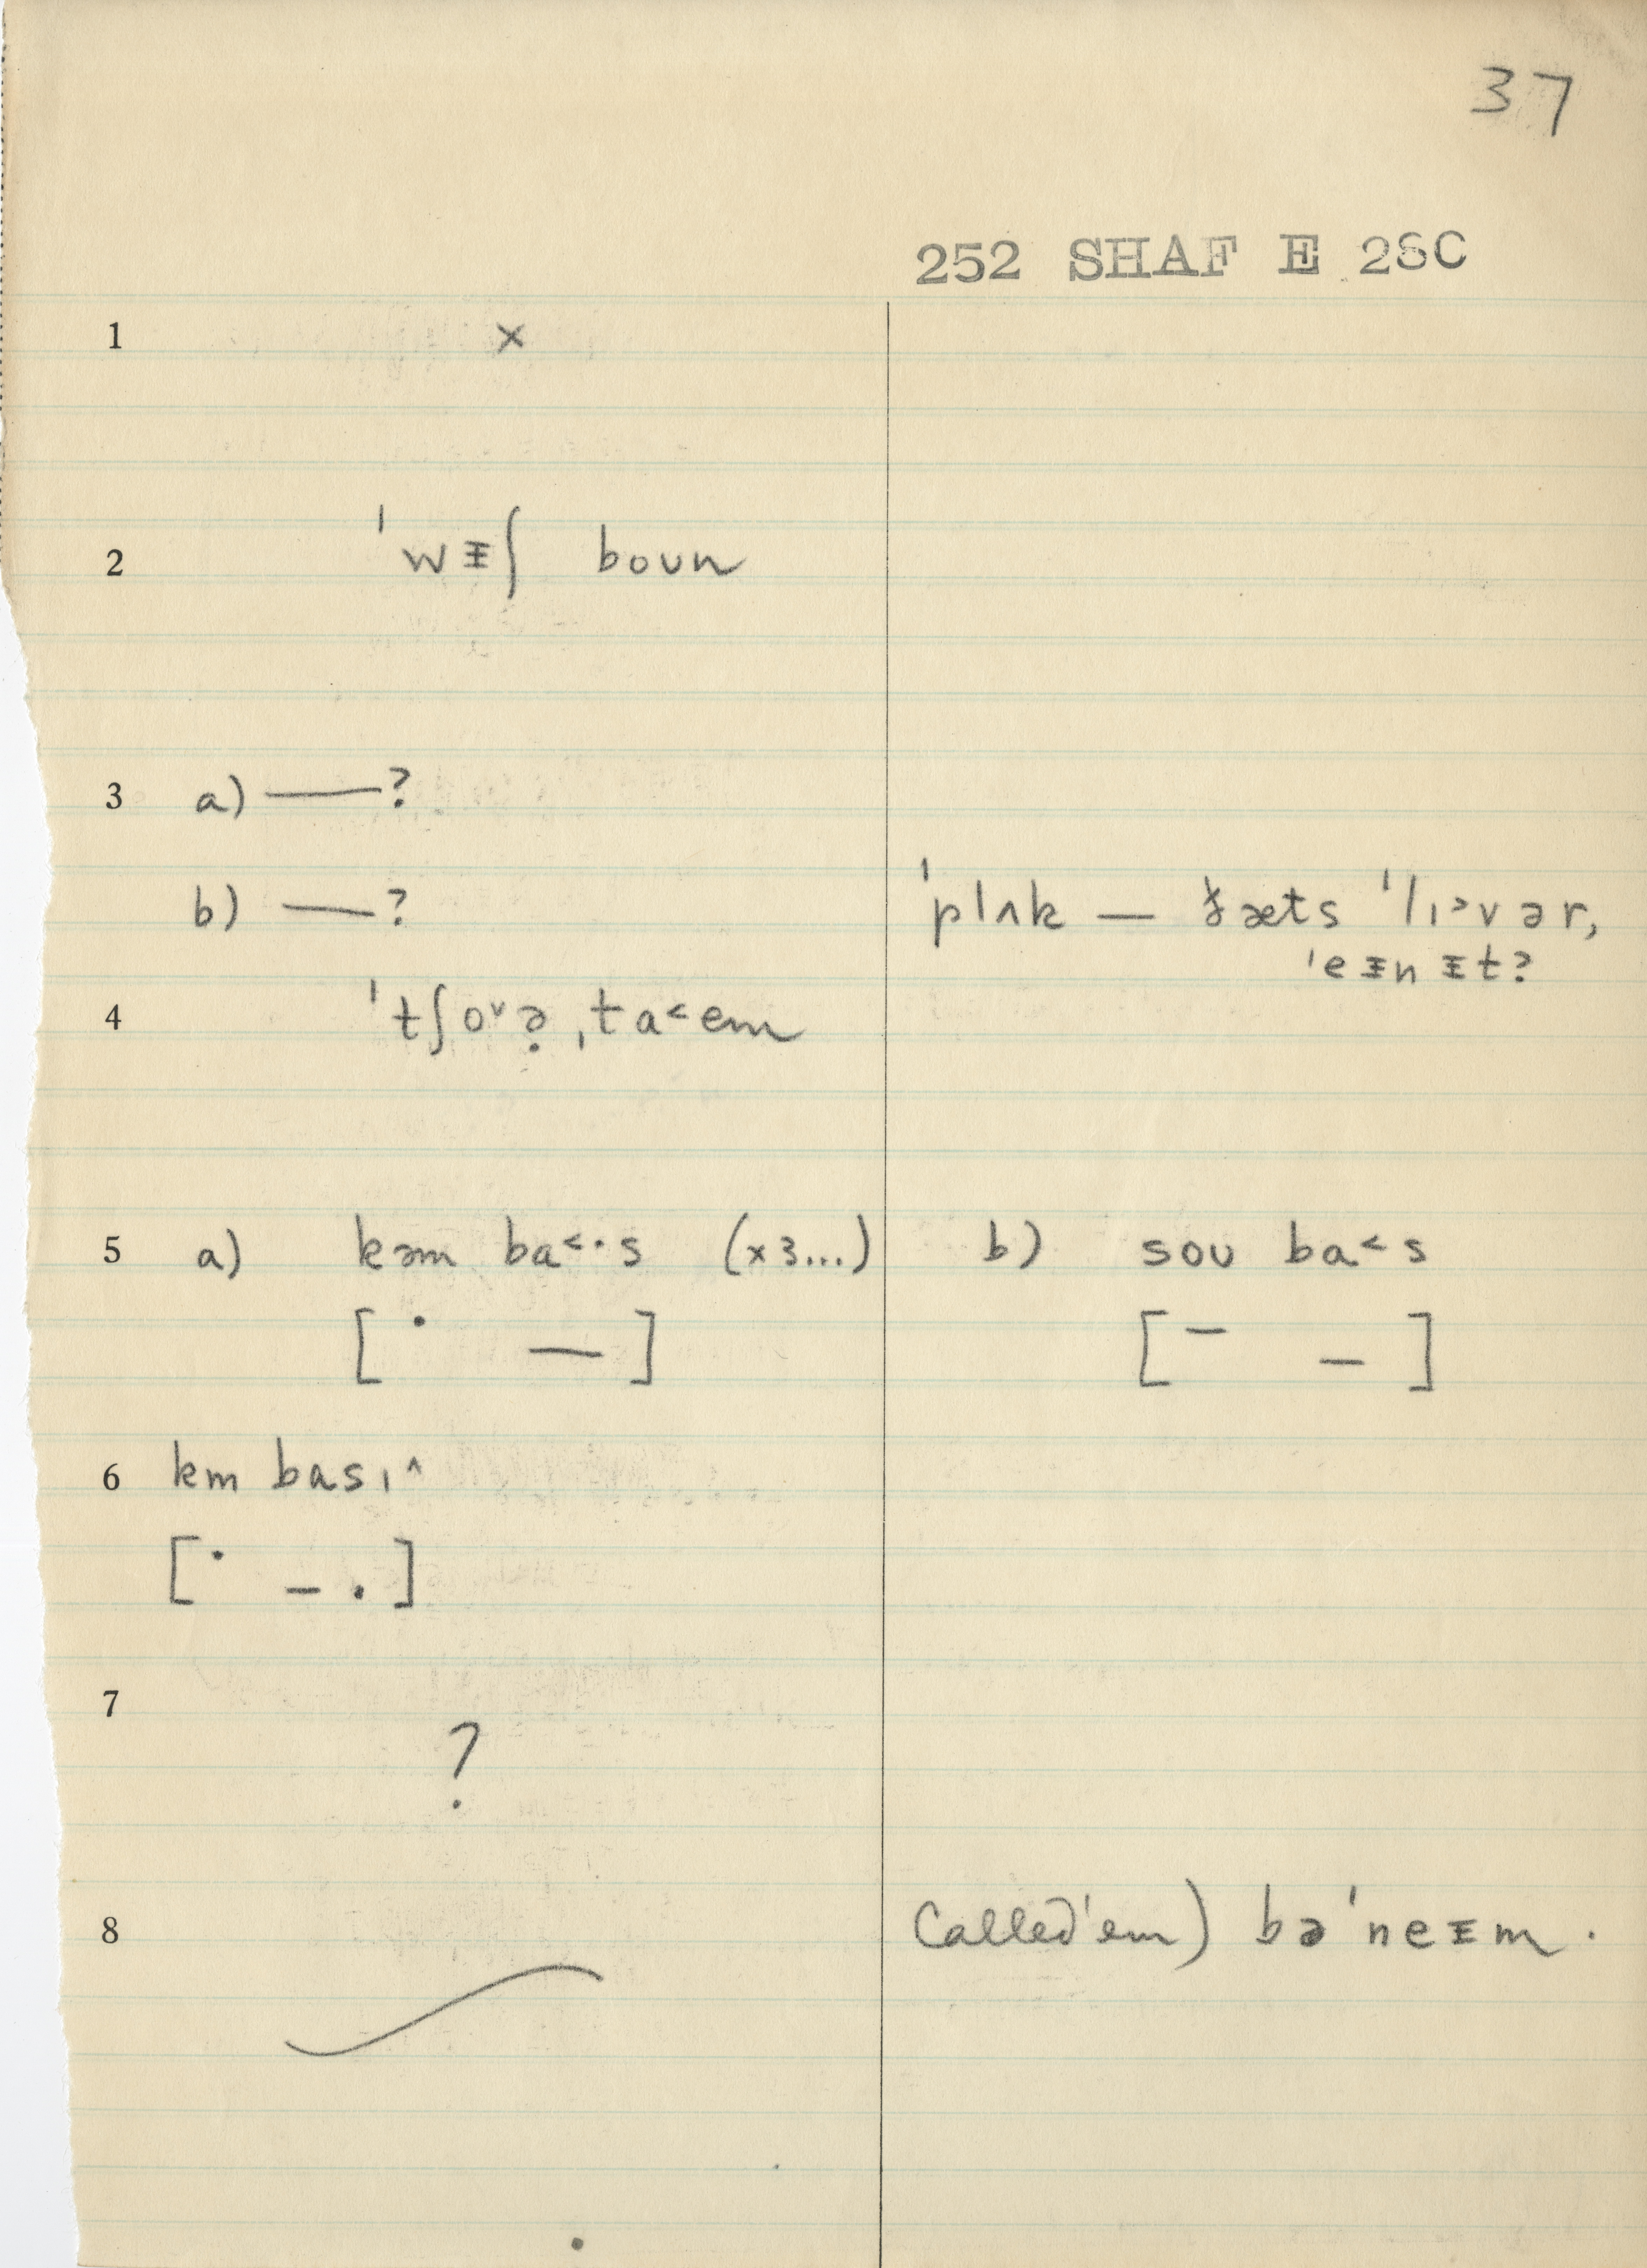 37
252 SHAF E 28C
1 x
2 ˈwᵻʃ boun
3 a) —?
b) —? ˈplʌk — ðæts ˈlɪ˃vər,
ˈeᵻnᵻt?
4 ˈtʃo˅ə̣ ˌta˂em
5 a) kəm ba˂·s (x3...) b) sou ba˂s
[ · — ] [ – – ]
6 km basɪ^
[ · – . ]
7 ?
8 Called 'em) bəˈneᵻm.